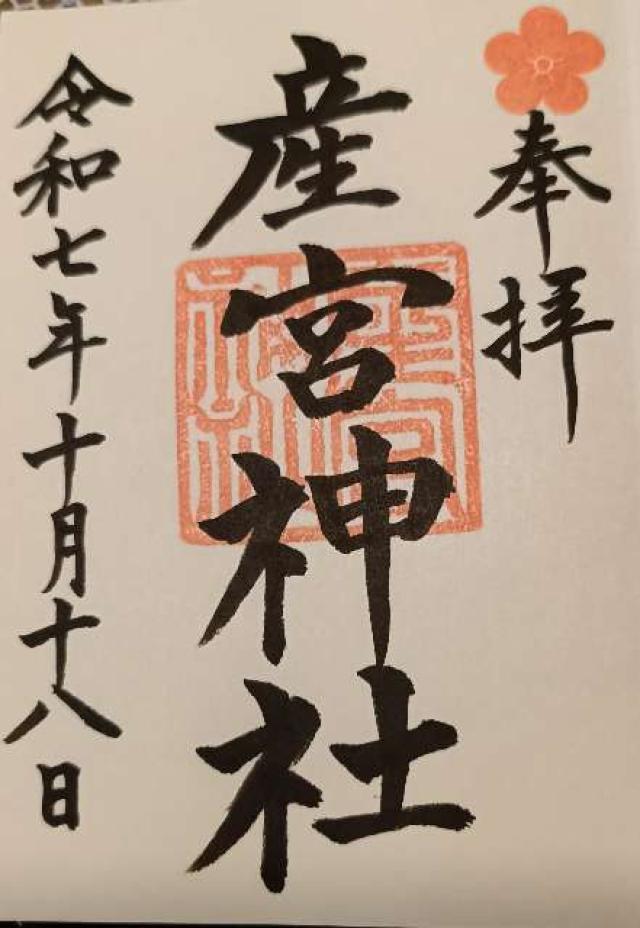 奉拝
産宮神社
令和七年十月十八日